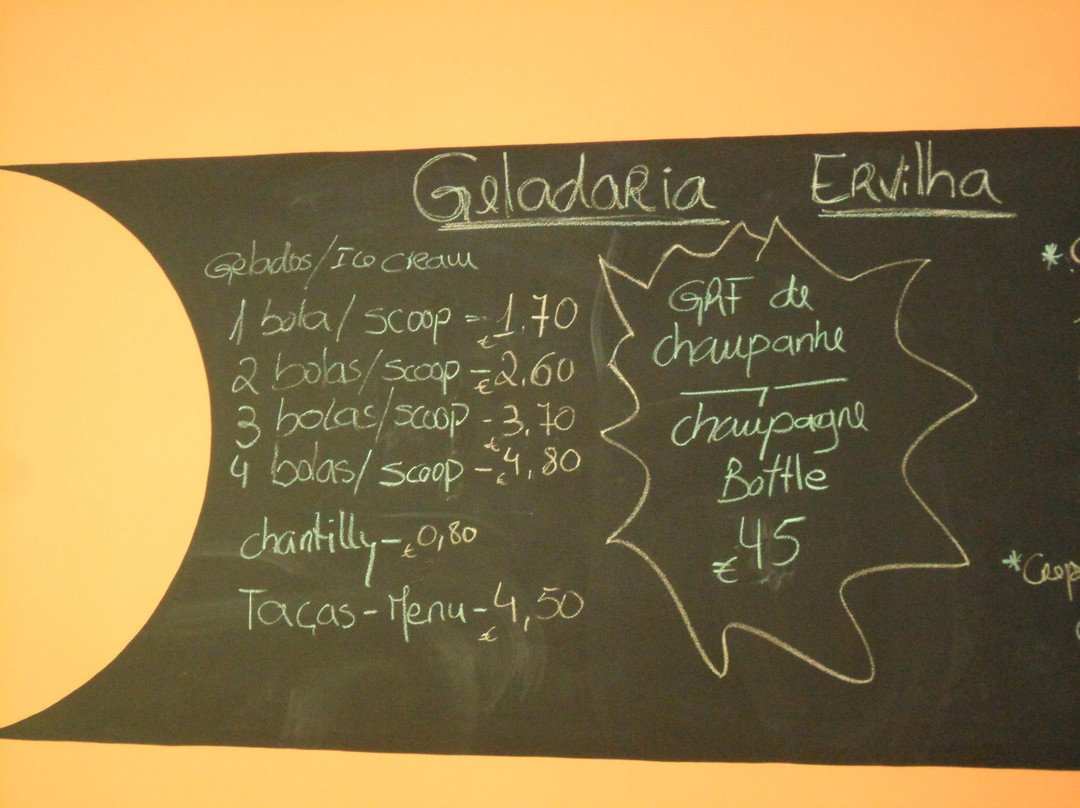 Geladaria Ervilha
Gelados/Ice cream
1 bola/scoop - € 1.70
2 bolas/scoop - € 2.60
3 bolas/scoop - € 3.70
4 bolas/scoop - € 4,80
chantilly - € 0,80
Taças - Menu - € 4,50
GRF de
champanhe
champagne
Bottle
€ 45